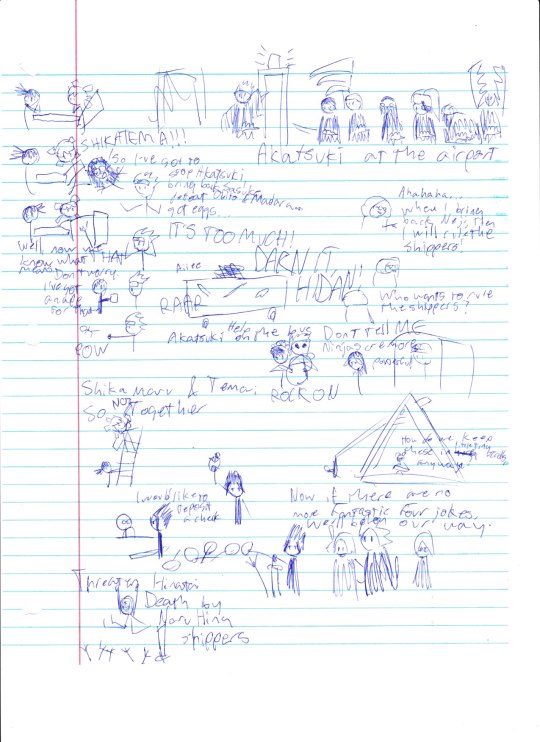 SHIKATEMA!!!
Akatsuki at the airport
So I've got to
stop Akatsuki
bring back Sasuke
defeat Obito & Madara...
get eggs...
IT'S TOO MUCH!
Ahahaha...
when I bring
back Neji then
I will rule the
shippers!
Well now we
know what THAT
means
Don't worry
I've got
a
for that
POW
DARN IT
HIDAN!
RAAR
Help
Akatsuki on the bus
Who wants to rule
the shippers?
Don't tell ME
Ninjas are more
powerful
ROCK ON
Shikamaru & Temari
SO NOT Together
How do we keep
these in
anyway?
I would like to
deposit
a check
Now if there are no
more fantastic four jokes,
we'll be on our way.
Threaten Hinata:
Death by
NaruHina
shippers